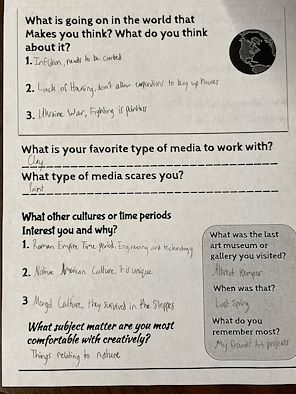 What is going on in the world that
Makes you think? What do you think
about it?
1. Inflation, needs to be curbed
2. Lack of Housing, don't allow corporations to buy up houses
3. Ukraine War, Fighting is pointless
What is your favorite type of media to work with?
Clay
What type of media scares you?
Paint
What other cultures or time periods
Interest you and why?
1. Roman Empire Time period, Engineering and technology
2. Native American Culture, it is unique
3 Mongol Culture, they survived in the Steppes
What subject matter are you most
comfortable with creatively?
Things relating to nature
What was the last
art museum or
gallery you visited?
Albrect Kemper
When was that?
Last Spring
What do you
remember most?
My friends Art projects